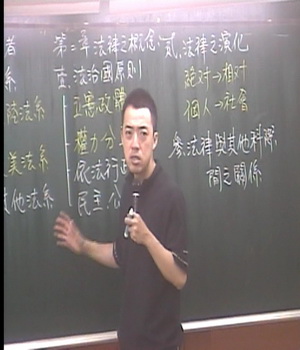 者
第二章法律之概念
系
壹.法治國原則
立憲政
陸法系
權力分
美法系
依法行政
其他法系
民主.公
貳.法律之演化
絕対→相対
個人→社會
參.法律與其他科際
間之關係